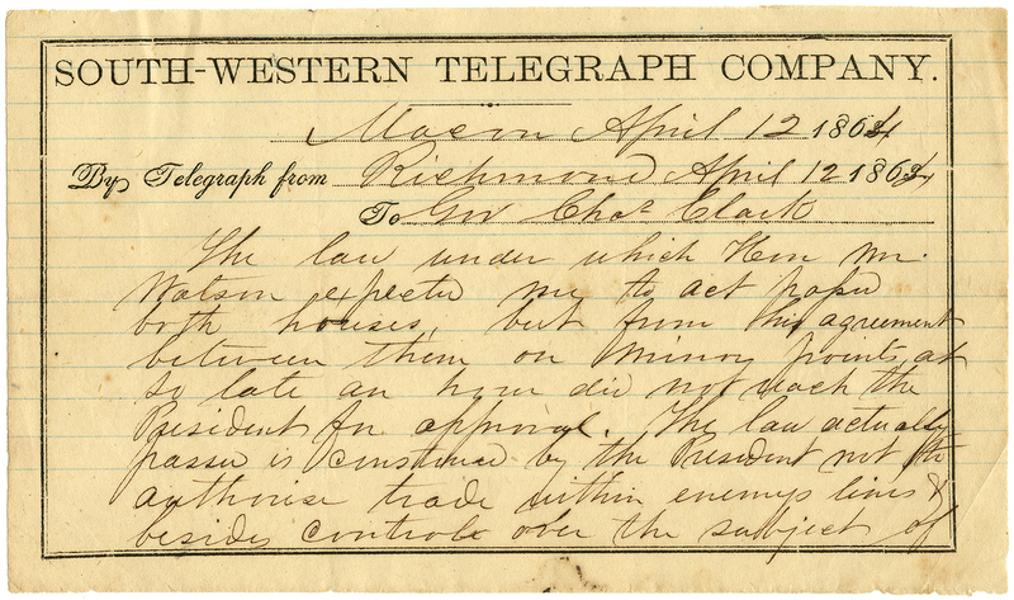 SOUTH-WESTERN TELEGRAPH COMPANY.
Macon April 12 1864
By Telegraph from Richmond April 12 1864
To Gov Chas Clark
The law under which Hon Mr.
Watson expected me to act passed
both houses, but from disagreement
between them on minor points, at
so late an hour did not reach the
President for approval. The law actually
passed is construed by the President not to
authorise trade within enemys lines &
besides controls over the subject of